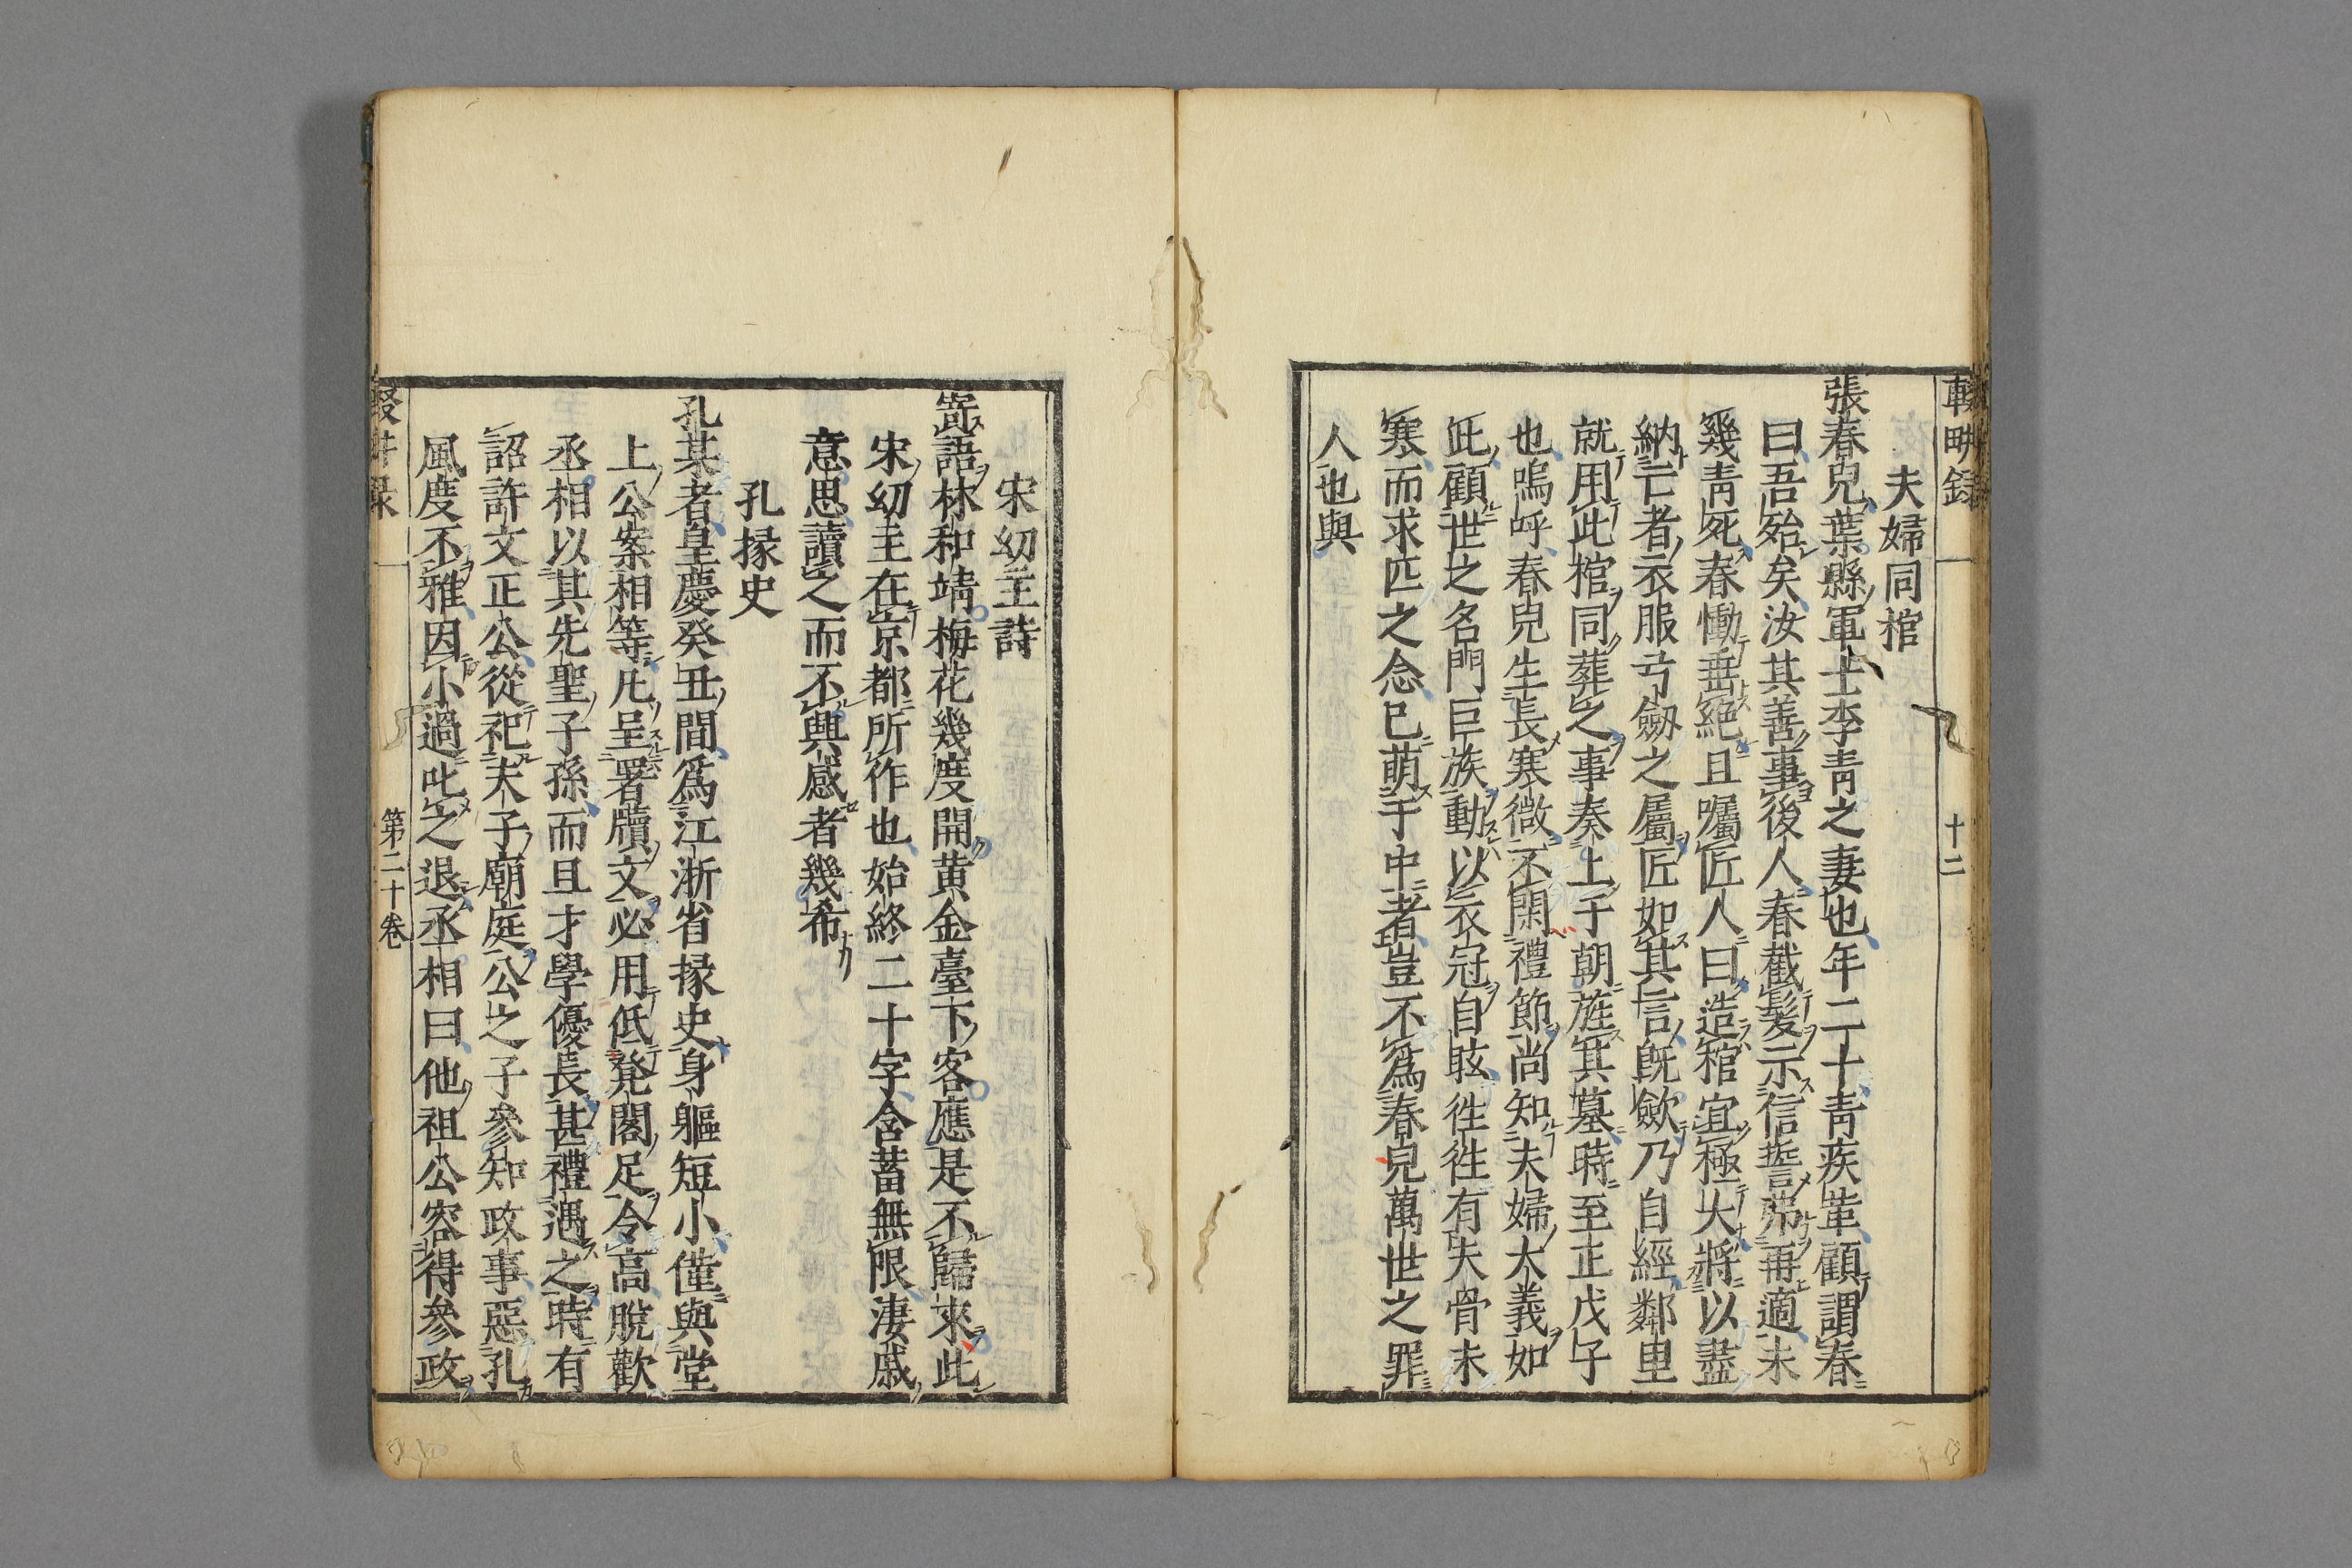 輟畊録
十二
夫婦同棺
張春兒葉縣軍士李青之妻也年二十青疾革顧謂春
曰吾殆矣汝其善事後人春截髮示信誓弗再適未
幾青死春慟垂絶且囑匠人曰造棺宜極大將以盡
納亡者衣服弓劒之屬匠如其言既斂乃自經鄰里
就用此棺同葬之事奏上于朝旌其墓時至正戊子
也嗚呼春兒生長寒微不閑禮節尚知夫婦大義如
此顧世之名門巨族動以衣冠自眩徃徃有夫骨未
寒而求匹之念已萌于中者豈不爲春兒萬世之罪
人也與
宋幼主詩
寄語林和靖梅花幾度開黄金臺下客應是不歸來此
宋幼主在京都所作也始終二十字含蓄無限凄戚
意思讀之而不興感者幾希
孔掾史
孔某者皇慶癸丑間爲江浙省掾史身軀短小僅與堂
上公案相等凡呈署牘文必用低凳閣足令高脱歡
丞相以其先聖子孫而且才學優長甚禮遇之時有
詔許文正公從祀夫子廟庭公之子參知政事惡孔
風度不雅因小過叱之退丞相曰他祖公容得參政
第二十卷